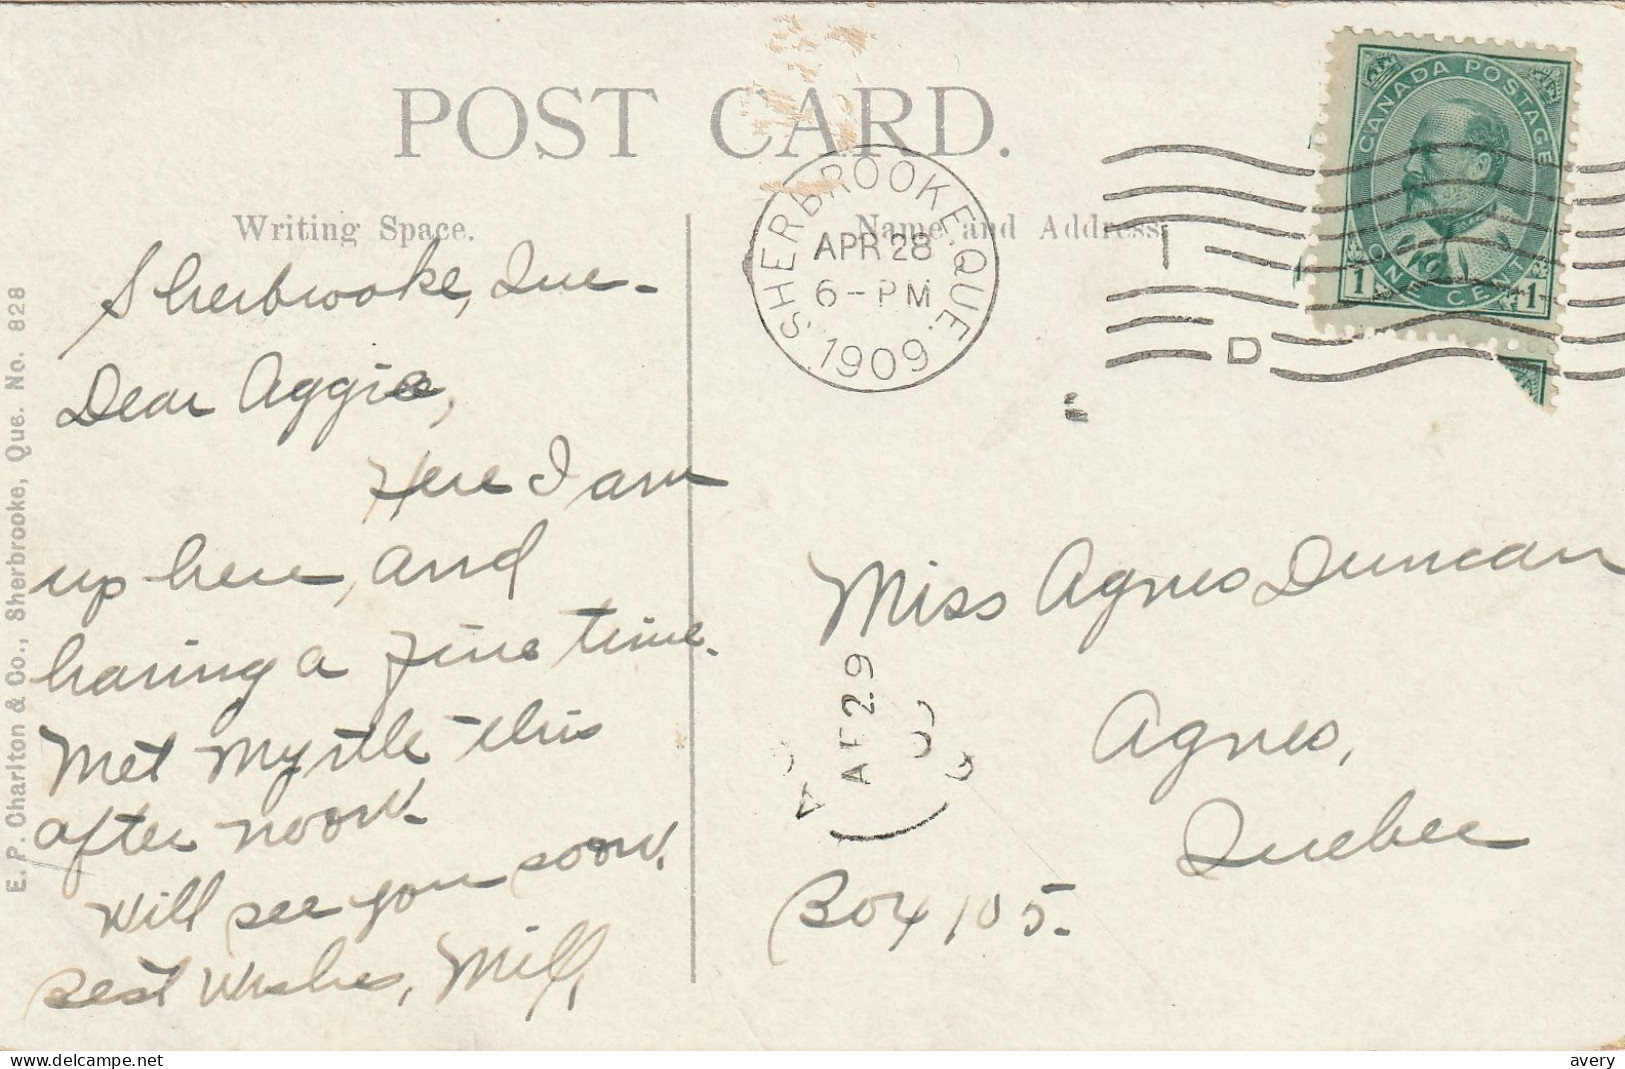 POST CARD.
Writing Space.
Name and Address.
SHERBROOKE, QUE.
APR 28
6-PM
1909
I
D
CANADA POSTAGE
ONE CENT
1 1
Sherbrooke, Que-
Dear Aggie,
Here I am
up here, and
having a fine time.
Met Myrtle this
after noon.
Will see you soon.
Best Wishes, Mill,
E. P. Charlton & Co., Sherbrooke, Que. No. 828
Miss Agnes Duncan
Agnes,
Quebec
Box 105.
29
www.delcampe.net
avery